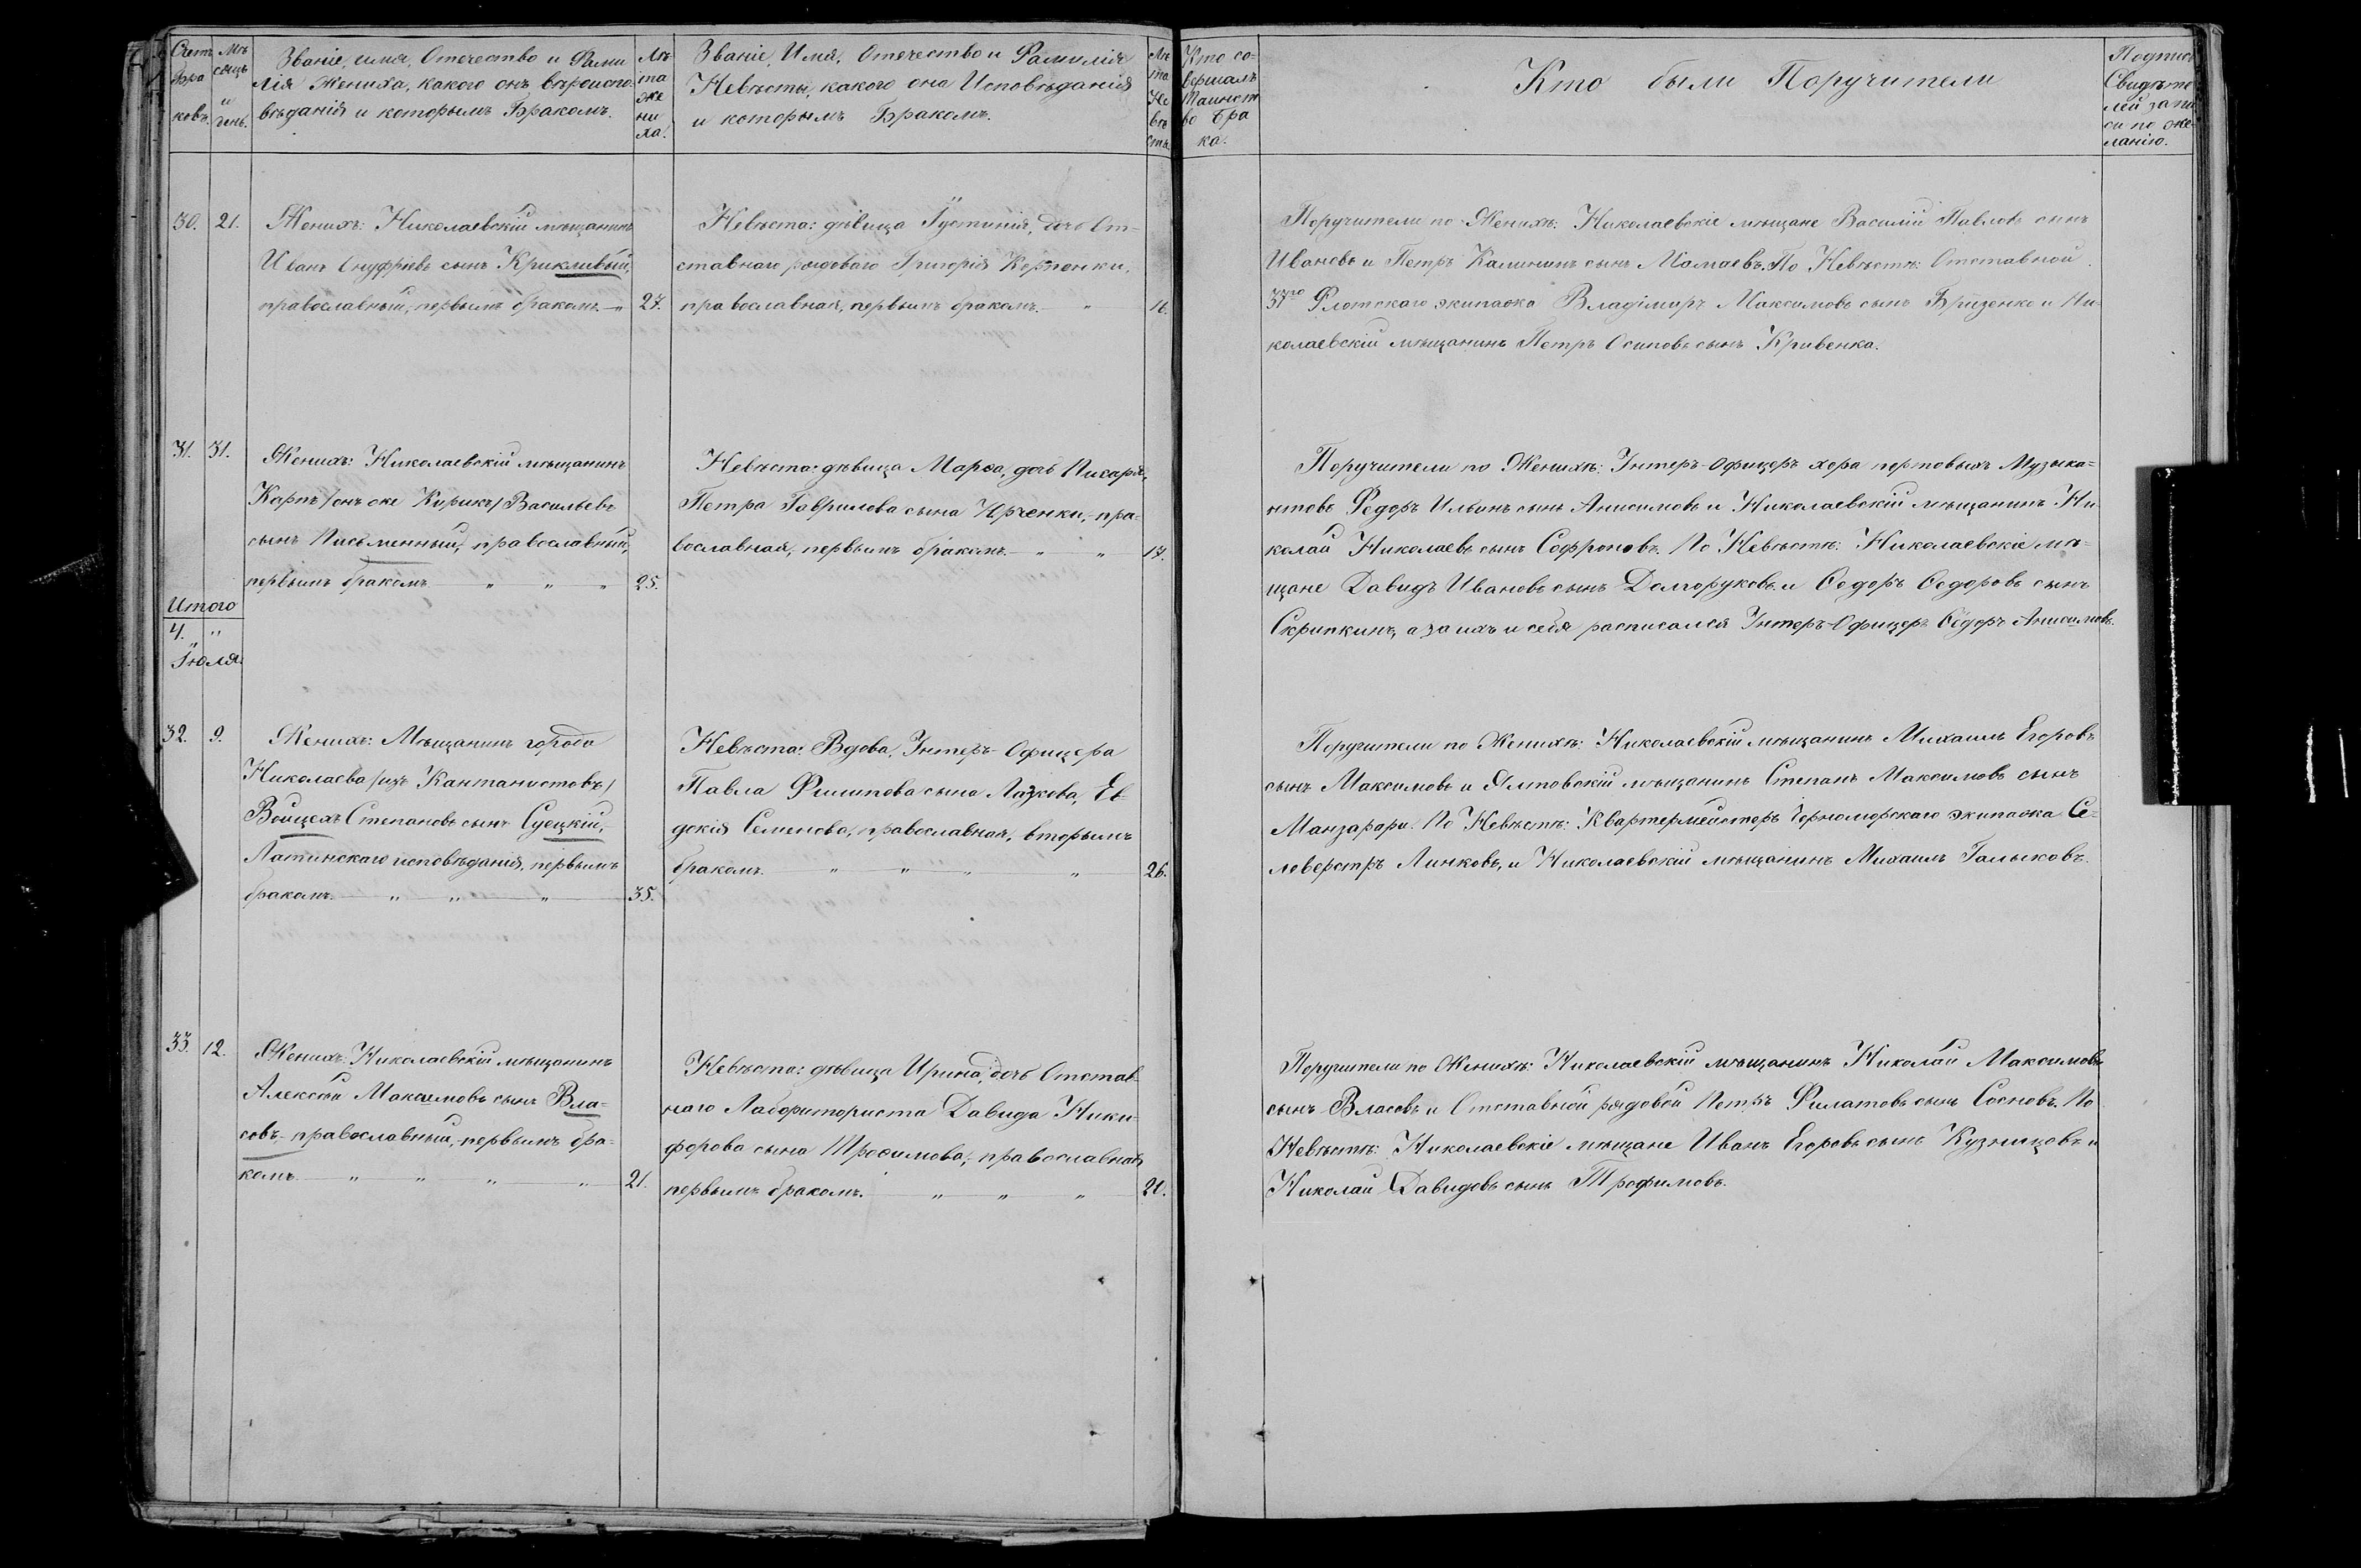 Счетъ бра ковъ.
Мѣ сяцъ и день.
Званіе, имя, Отечество и Фами
лія Жениха, какого онъ вѣроиспо
вѣданія и которымъ Бракомъ.
Лѣ та же ни ха.
Званіе, Имя, Отечество и Фамилія
Невѣсты, какого она Исповѣданія
и которымъ Бракомъ.
Лѣ та Не вѣ сты.
Кто со-
вершалъ
Таинст
во Бра
ка.
Кто были Поручители
Подпись
Свидѣте
лей запи
си по же-
ланію.
30. 21.
Женихъ: Николаевскій мѣщанинъ
Иванъ Онуфріевъ сынъ Крикливый,
православный, первымъ бракомъ. " 27.
Невѣста: дѣвица Іустинія, дочь От-
ставнаго рядового Григорія
православная, первымъ бракомъ. " 16.
Поручители по Женихѣ: Николаевскіе мѣщане Василій Павловъ сынъ
Ивановъ и Петръ Калининъ сынъ Мамаевъ. По Невѣстѣ: Отставной
37го Флотскаго экипажа Владіміръ Максимовъ сынъ Бризенко и Ни-
колаевскій мѣщанинъ Петръ Осиповъ сынъ Кривенка.
31. 31.
Женихъ: Николаевскій мѣщанинъ
Карпъ /онъ же Кирикъ/ Васильевъ
сынъ Письменный, православный,
первымъ бракомъ " " " 25.
Невѣста: дѣвица Марѳа, дочь Писаря,
Петра Гаврилова сына Юрченки, пра-
вославная, первымъ бракомъ. " " 17.
Поручители по Женихѣ: Унтеръ-Офицеръ хора портовыхъ Музыка-
нтовъ Федоръ Ильинъ сынъ Анисимовъ и Николаевскій мѣщанинъ Ни-
колай Николаевъ сынъ Софроновъ. По Невѣстѣ: Николаевскіе мѣ-
щане Давидъ Ивановъ сынъ Доморуковъ и Ѳедоръ Ѳедоровъ сынъ
Скрипкинъ, а за ихъ и себя расписался Унтеръ-Офицеръ Ѳедоръ Анисимовъ.
Итого
4. "
Іюля.
32. 9.
Женихъ: Мѣщанинъ города
Николаева /изъ Кантанистовъ/
Войцехъ Степановъ сынъ Суецкій,
Латинскаго исповѣданія, первымъ
бракомъ. " " " 35.
Невѣста: Вдова, Унтеръ-Офицера
Павла Филипова сына Лазкова, Ев-
докія Семенова, православная, вторымъ
бракомъ. " " " " 26.
Поручители по Женихѣ: Николаевскій мѣщанинъ Михаилъ Егоровъ
сынъ Максимовъ и Ялтовскій мѣщанинъ Степанъ Максимовъ сынъ
Манзарари. По Невѣстѣ: Квартермейстеръ Черноморскаго экипажа Се-
ловерстръ Линковъ, и Николаевскій мѣщанинъ Михаилъ Галыковъ.
33. 12.
Женихъ: Николаевскій мѣщанинъ
Алексѣй Максимовъ сынъ Вла-
совъ, православный, первымъ бра-
комъ. " " " " 21.
Невѣста: дѣвица Ирина, дочь Отстав-
наго Лабориториста Давида Ники-
форова сына православная
первымъ бракомъ. " " " 20.
Поручители по Женихѣ: Николаевскій мѣщанинъ Николай Максимовъ
сынъ Власовъ и Отставной рядовой Петръ Филатовъ сынъ Сосновъ. По
Невѣстѣ: Николаевскіе мѣщане Иванъ Егоровъ сынъ Кузнецовъ и
Николай Давидовъ сынъ Трофимовъ.